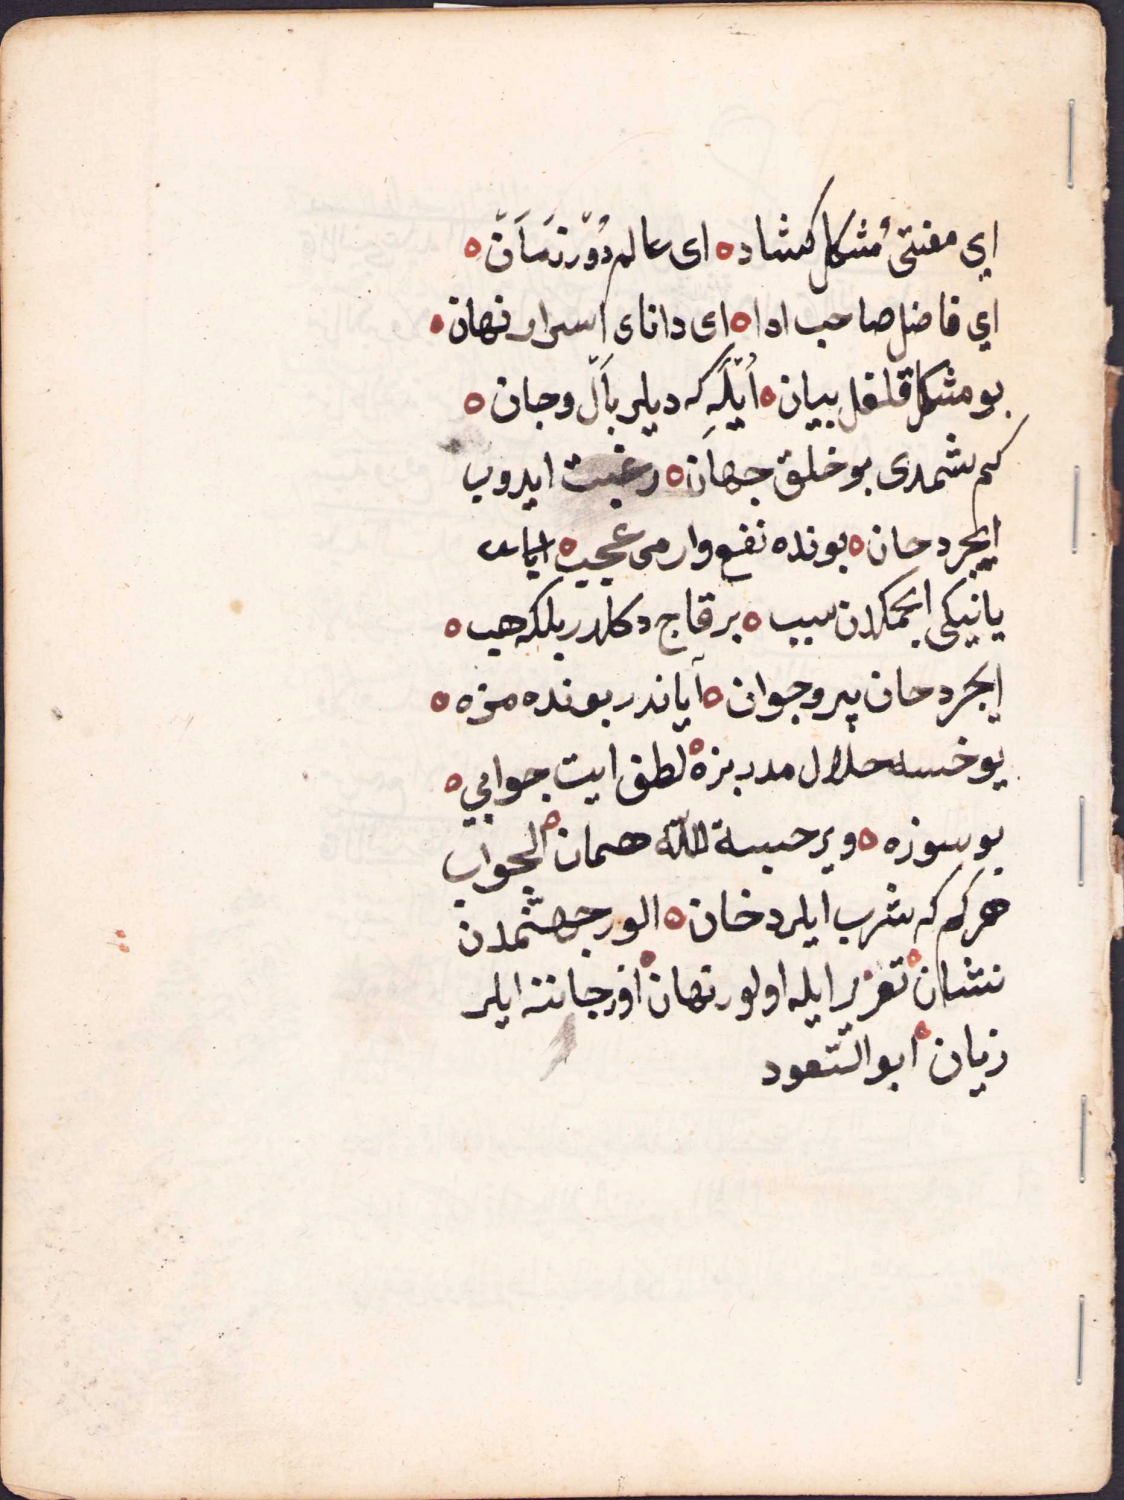 اي مفتئ مُشكل كشاد ه اى عالم دُوّر زَمَاَنّ ه
اي فاضل صاحب ادا ه اى داناى اسرار نهان ه
بو مشكل قلغل بيان ه اُيّلَه كه ديلر باَلّ وجان ه
كم شمدى بو خلق جهاَن ه رغبت ايدوب
ايچرد حان ه بونده نفع وارمى عجيب ه
يا نيكى ايچمكدن سبب ه بر قاچ دكلدر بلكه هب ه
ايچرد حان پير وجوان ه آيا ندر بونده مزه ه
يوخسه حلال مدر بزه ه لطف ايت جوابي ه
بو سوزه ه وير حسبة للّه همان ه الجواب
هر كم كه شرب ايلر دخان ه الور جهنّمدن
نشان ه تعزير ايله اولور نهان ه اوز جاننه ايلر
زيان ه ابو السّعود